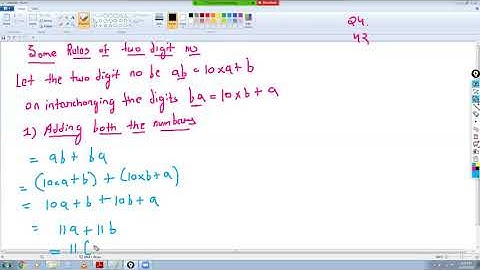 24.
42
Some Rules of two digit nos
Let the two digit no be ab = 10xa+b
on interchanging the digits ba = 10xb + a
1) Adding both the numbers
= ab + ba
= (10xa+b) + (10xb+a)
= 10a + b + 10b + a
= 11a + 11b
= 11 [